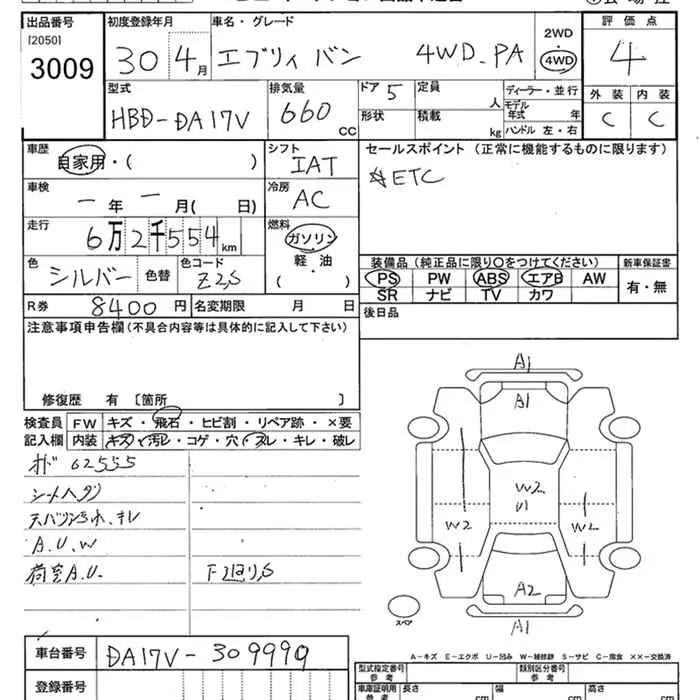 出品番号
[2050]
3009
初度登録年月
30 4月
車名・グレード
エブリィ バン 4WD PA
2WD
4WD
評価点
4
型式
HBD-DA17V
排気量
660 CC
ドア 5
形状
定員 人
積載 kg
ディーラー・並行
モデル年式 年
ハンドル 左・右
外装 内装
C C
車歴
自家用・( )
シフト
IAT
セールスポイント (正常に機能するものに限ります)
☆ETC
車検
ー年 ー月( 日)
冷房
AC
走行
6万2千554km
燃料
ガソリン
軽・油
( )
色
シルバー
色替
色コード
Z2S
装備品 (純正品に限り○をつけてください)
PS PW ABS エアB AW
SR ナビ TV カワ
新車保証書
有・無
R券 8400円
名変期限 月 日
後日品
注意事項申告欄 (不具合内容等は具体的に記入して下さい)
修復歴 有 [箇所 ]
検査員記入欄
FW キズ・飛石・ヒビ割・リペア跡・×要
内装 キズ・汚レ・コゲ・穴・スレ・キレ・破レ
62555
A.U.W
荷室A.U.
A1
A1
W2
U1
W2
W2
A2
A1
スペア
A-キズ E-エクボ U-凹み W-補修跡 S-サビ C-腐食 ××-交換済
車台番号
DA17V-309990
登録番号
型式指定番号
参考
類別区分番号
参考
車庫証明用
参考
長さ cm
幅 cm
高さ cm